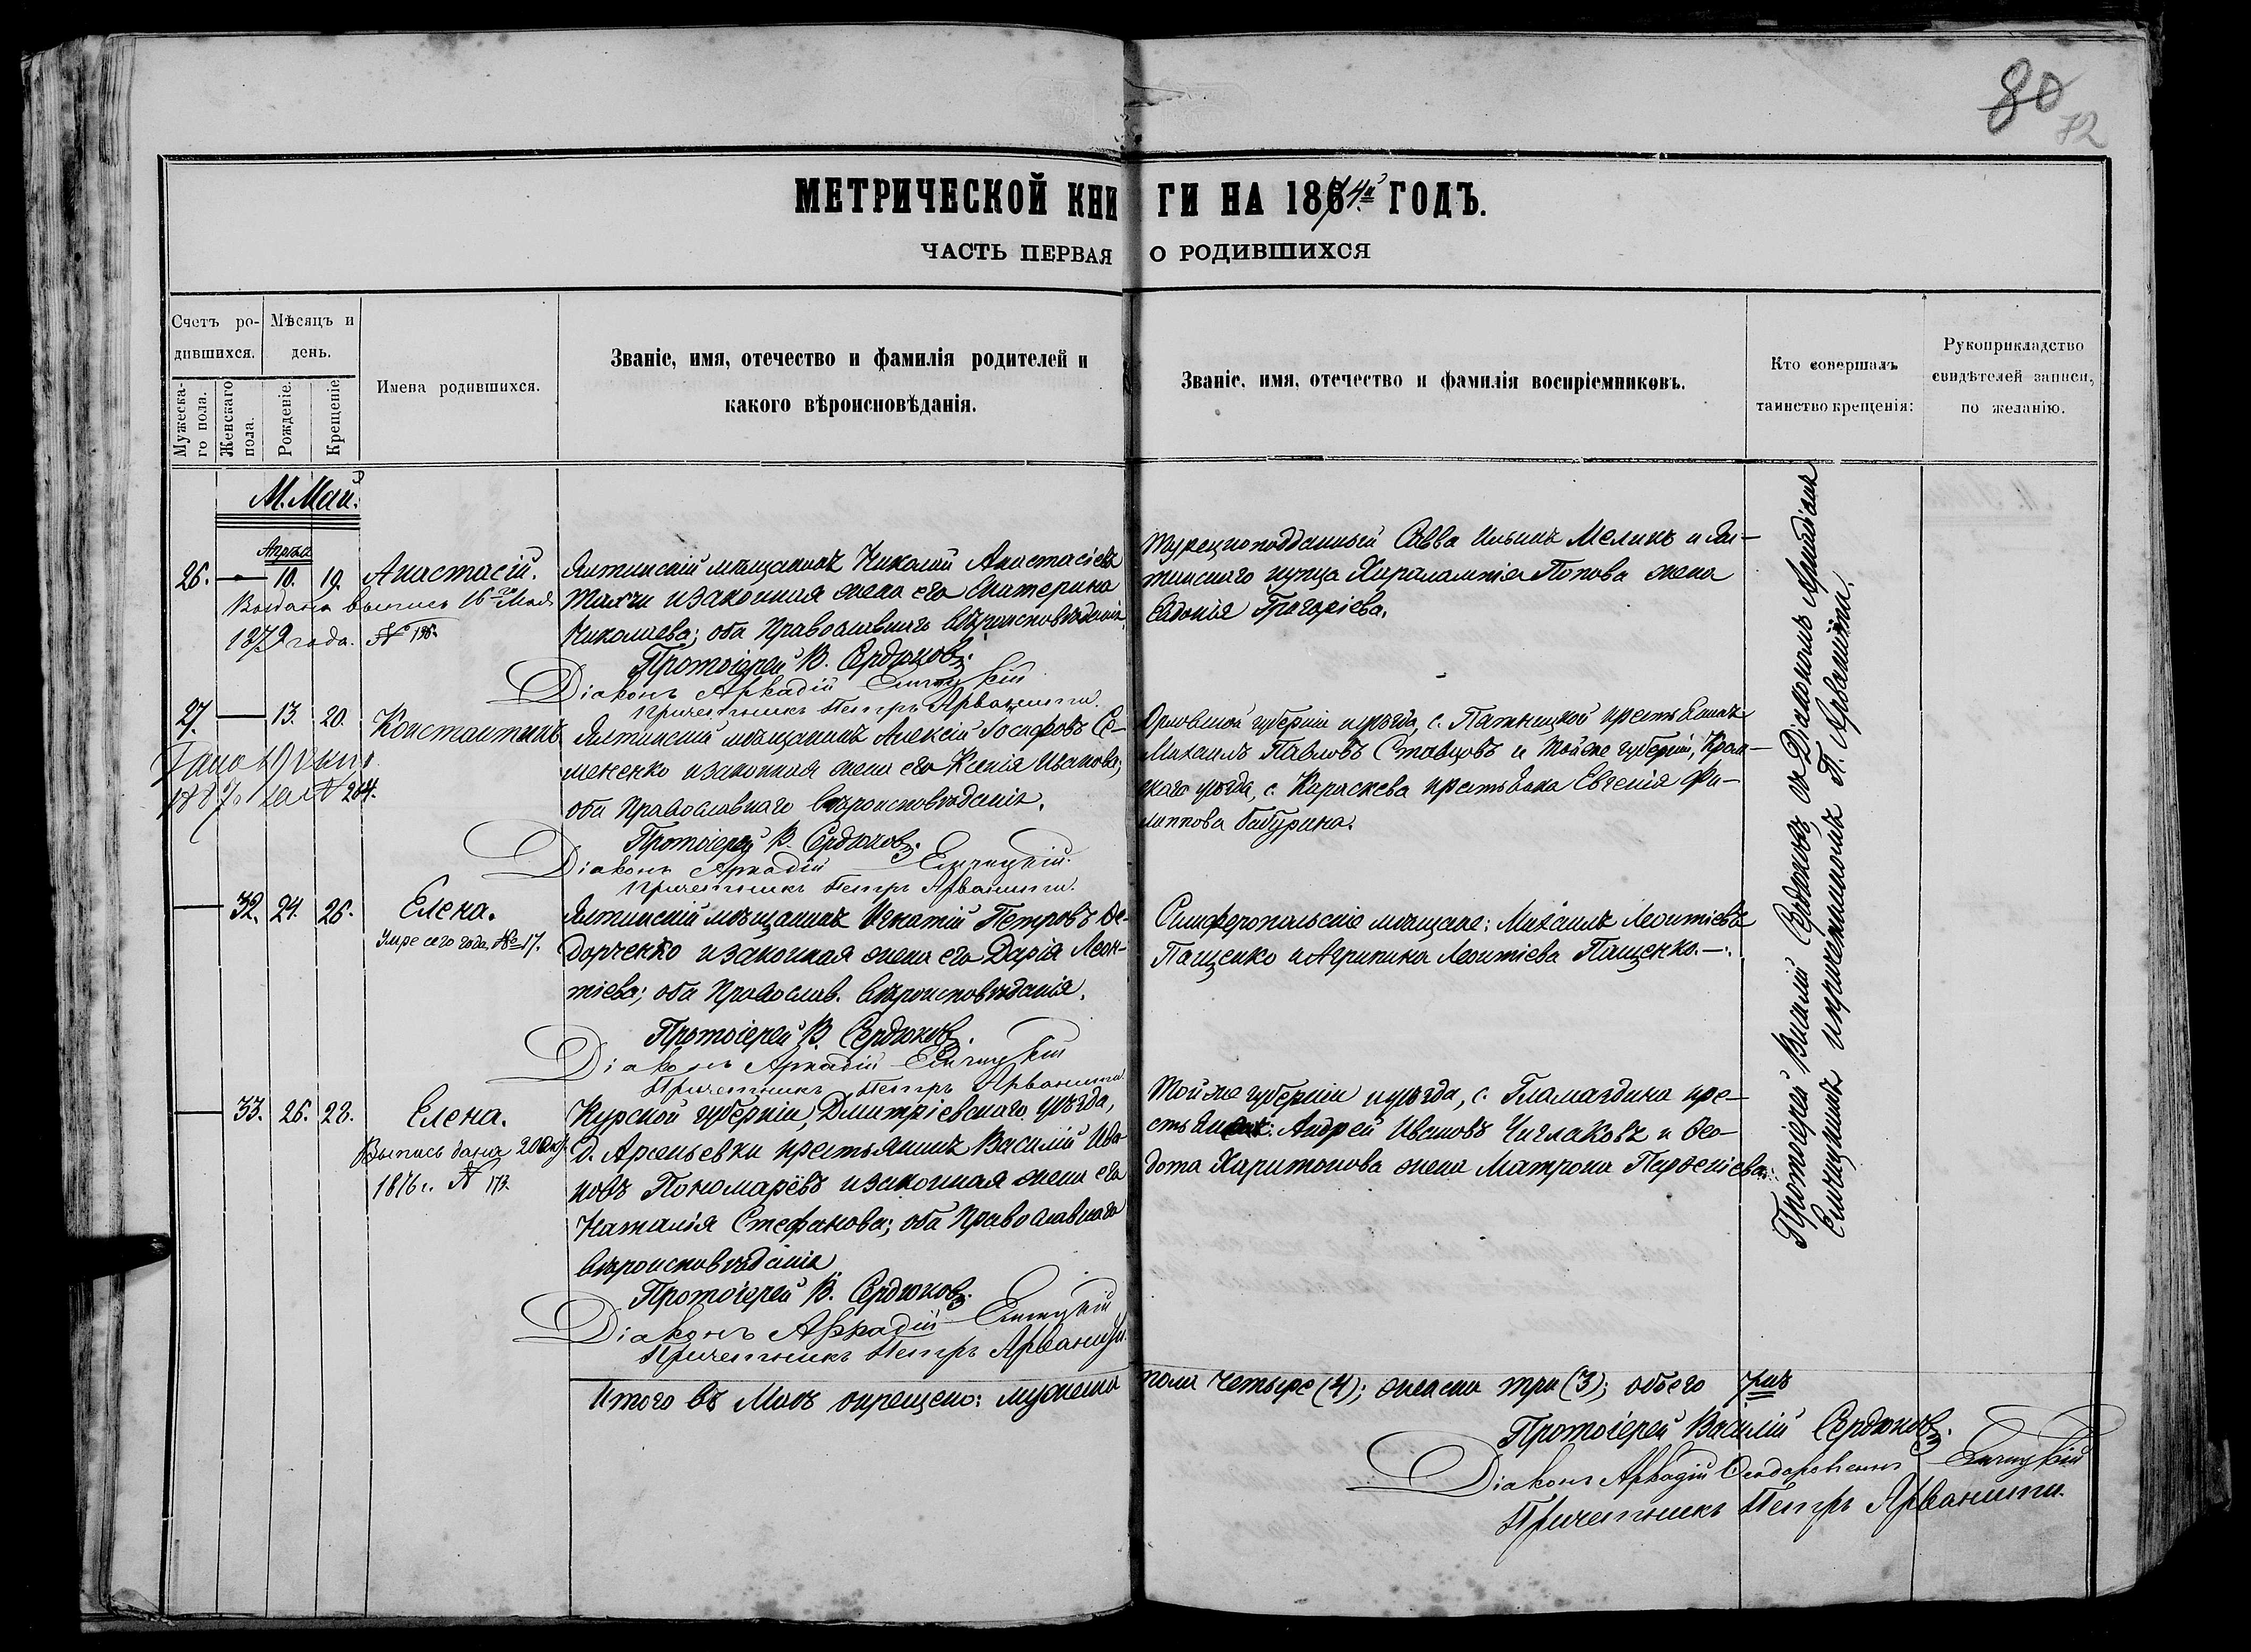 80
72
МЕТРИЧЕСКОЙ КНИГИ НА 1874й ГОДЪ.
ЧАСТЬ ПЕРВАЯ О РОДИВШИХСЯ
Счетъ родившихся.
Мѣсяцъ и день.
Мужескаго пола.
Женскаго пола.
Рожденіе.
Крещеніе.
Имена родившихся.
Званіе, имя, отечество и фамилія родителей и
какого вѣроисповѣданія.
Званіе, имя, отечество и фамилія воспріемниковъ.
Кто совершалъ
таинство крещенія:
Рукоприкладство
свидѣтелей записи,
по желанію.
М. Май.
Апрѣля
26. — 10. 19. Анастасій.
Выдана выпись 16го Мая
1879 года. № 198.
Ялтинскій мѣщанинъ Николай Анастасіевъ
и законная жена его Екатерина
Николаева; оба Православнаго вѣроисповѣданія.
Протоіерей В. Сердюковъ.
Діаконъ Аркадій
Причетникъ Петръ Арванити.
Турецкоподданный Савва Ильинъ Меликъ и Ял-
тинскаго купца Харалампія Попова жена
Евдокія Григоріева.
27. — 13. 20. Константинъ
1887 за № 284.
Ялтинскій мѣщанинъ Алексій Іосифовъ Се-
мененко и законная жена его Ксенія Иванова;
оба Православнаго вѣроисповѣданія.
Протоіерей В. Сердюковъ.
Діаконъ Аркадій
Причетникъ Петръ Арванити.
Орловской губерніи и уѣзда, с. Пятницкой крестьянинъ
Михаилъ Павловъ Ставцовъ и той же губерніи, Кром-
скаго уѣзда, с. Караскева крестьянка Евгенія Фи-
липпова Бабурина.
— 32. 24. 26. Елена.
Умре сего года, № 17.
Ялтинскій мѣщанинъ Игнатій Петровъ Ѳе-
дорченко и законная жена его Дарія Леон-
тіева; оба Православ. вѣроисповѣданія.
Протоіерей В. Сердюковъ.
Діаконъ Аркадій
Причетникъ Петръ Арванити
Симферопольскіе мѣщане: Михаилъ Леонтіевъ
Пащенко и Агрипина Леонтіева Пащенко.
— 33. 26. 28. Елена.
Выпись дана 20
1876 г. № 173.
Курской губерніи, Дмитріевскаго уѣзда,
д. Арсеньевки крестьянинъ Василій Ива-
новъ Пономарёвъ и законная жена его
Наталія Стефанова; оба Православнаго
вѣроисповѣданія
Протоіерей В. Сердюковъ.
Діаконъ Аркадій
Причетникъ Петръ Арванити
Той же губерніи и уѣзда, с. Гламаздина кре-
стьяне: Андрей Ивановъ Чиглаковъ и Ѳео-
дота Харитонова жена Матрона Парѳеніева.
Протоіерей Василій Сердюковъ, съ Діакономъ Аркадіемъ
и причетникомъ П. Арванити.
Итого въ Маѣ окрещено: мужеска пола четыре (4); женска три (3); обоего 7мь
Протоіерей Василій Сердюковъ.
Діаконъ Аркадій
Причетникъ Петръ Арванити.